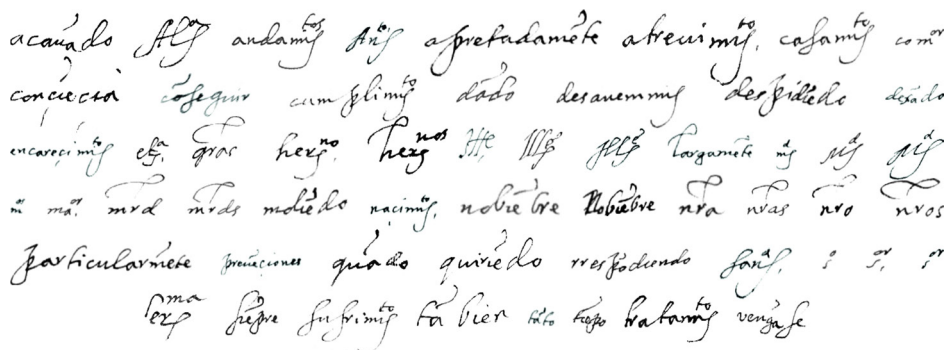 acauādo Alºs andamtos Ants apretadamēte atreuimtos, casamto comor
conciēcia cōseguir cumplimto dādo desauenmis despidiēdo dexādo
encarecimto etª. gras hersno, hersnos Ille, Illes Illes largamēte ms mds mds
mr mar. mrd mrds moliēdo nacimto, nobiēbre Nobiēbre nra nras nro nros
particularmēte preuēciones quādo quiriēdo rrespōdiendo sans, s sr, sr
serma siēpre sufrimto tābien tāto tiēpo tratamto vengāse